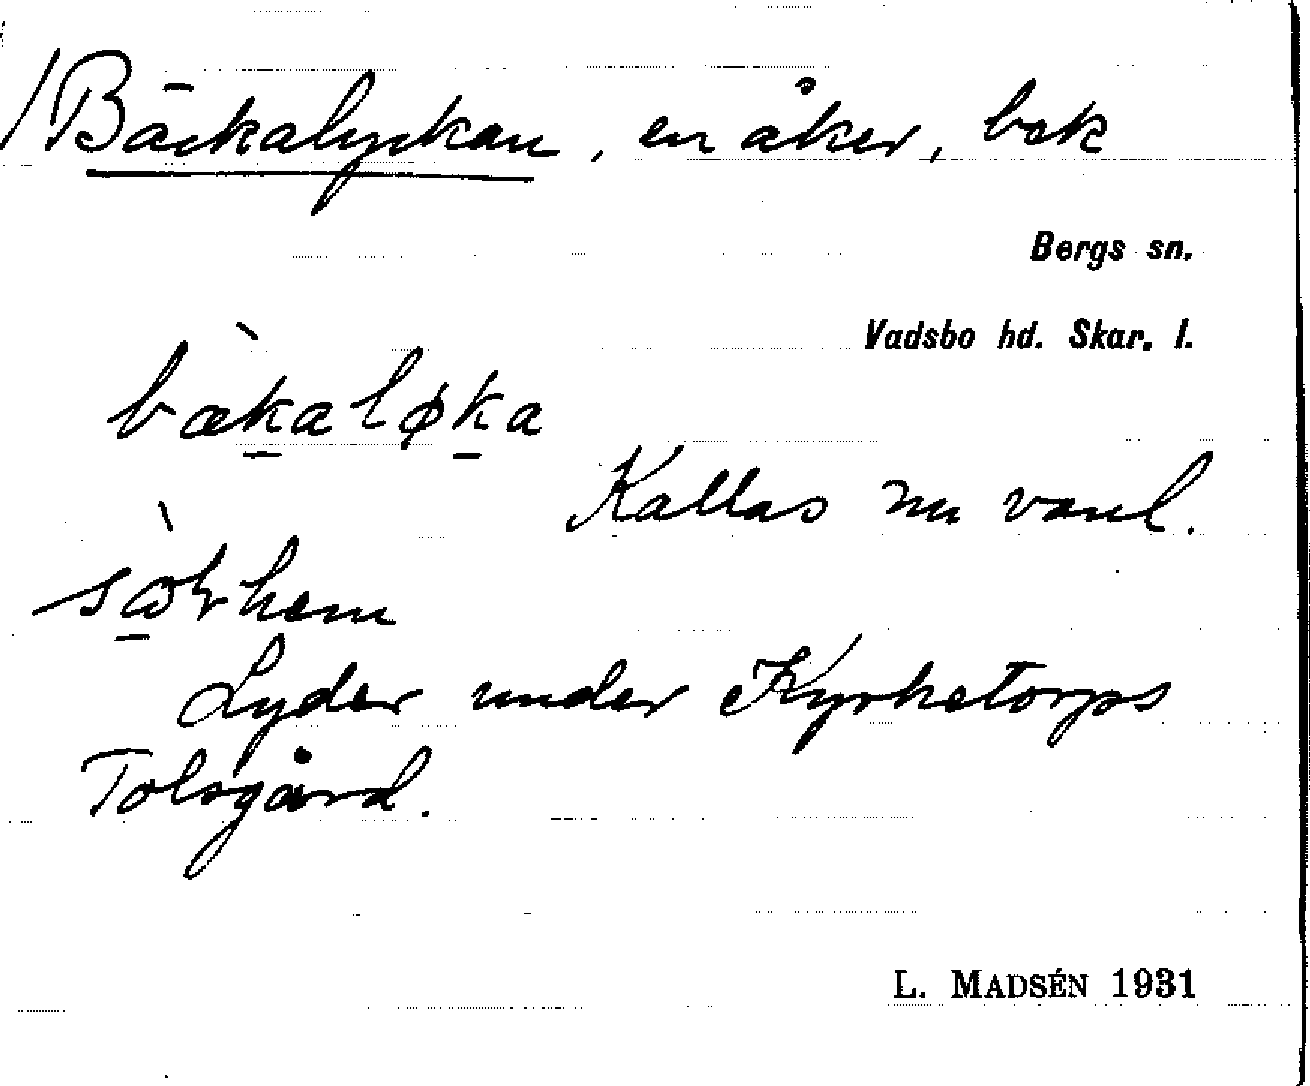 Bäckalyckan, en åker, bek
Bergs sn.
Vadsbo hd. Skar. l.
bækaløka
Kallas nu vanl.
Lyder under Kyrketorps
Tolsgård.
L. MADSÉN 1931